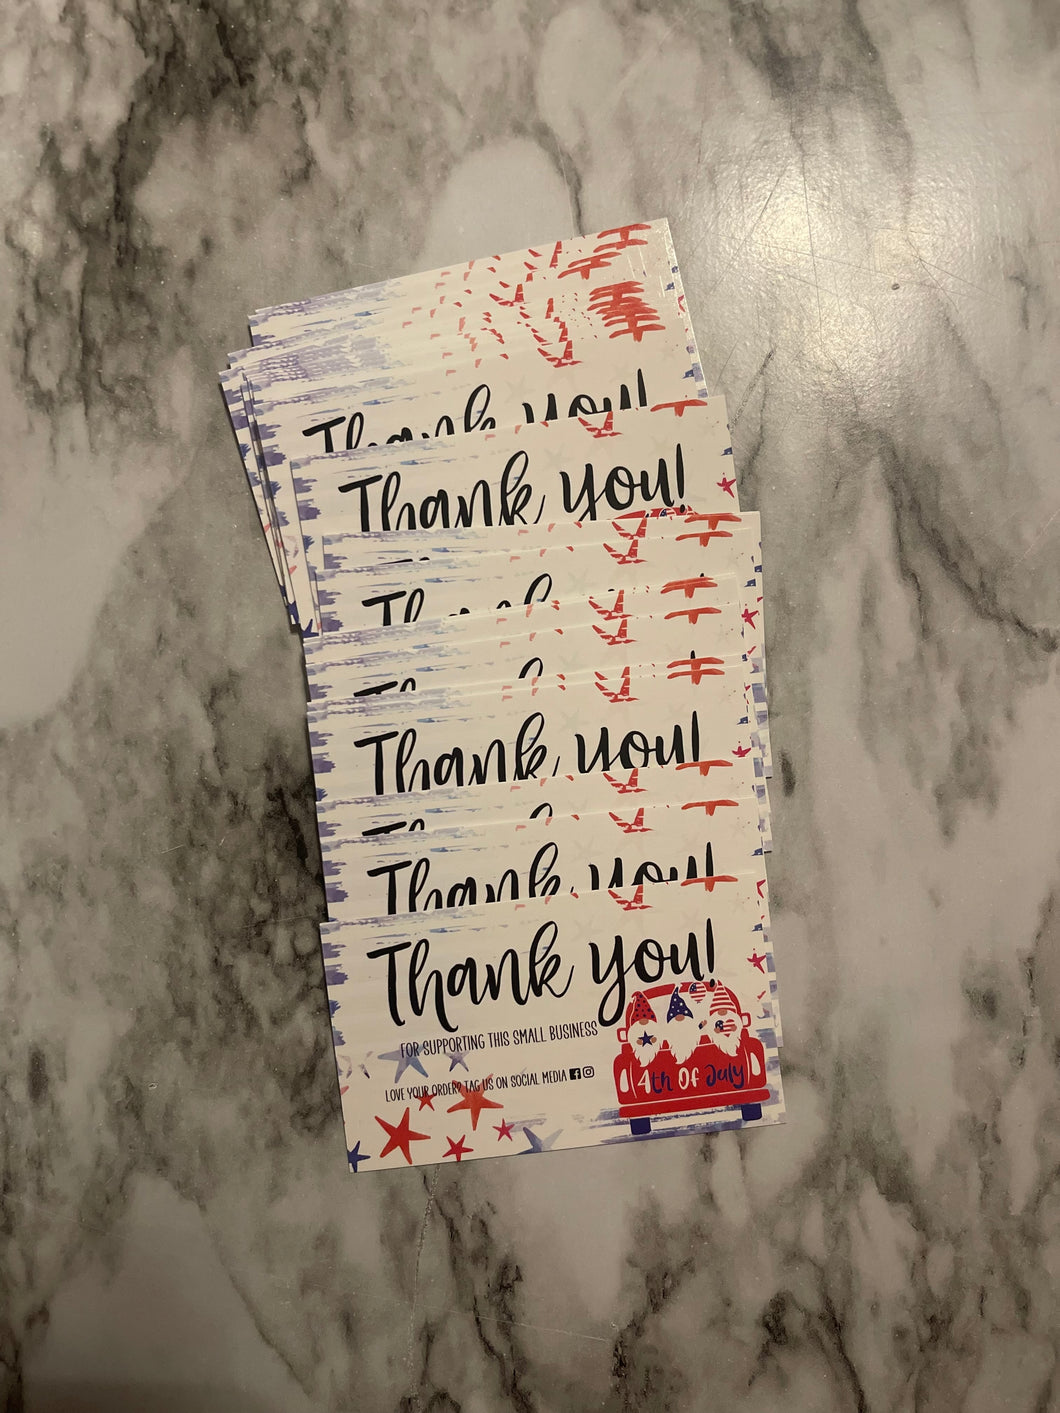 Thank you!
Thank you!
Thank
Thank you!
Thank you!
Thank you!
FOR SUPPORTING THIS SMALL BUSINESS
LOVE YOUR ORDER? TAG US ON SOCIAL MEDIA
4th Of July